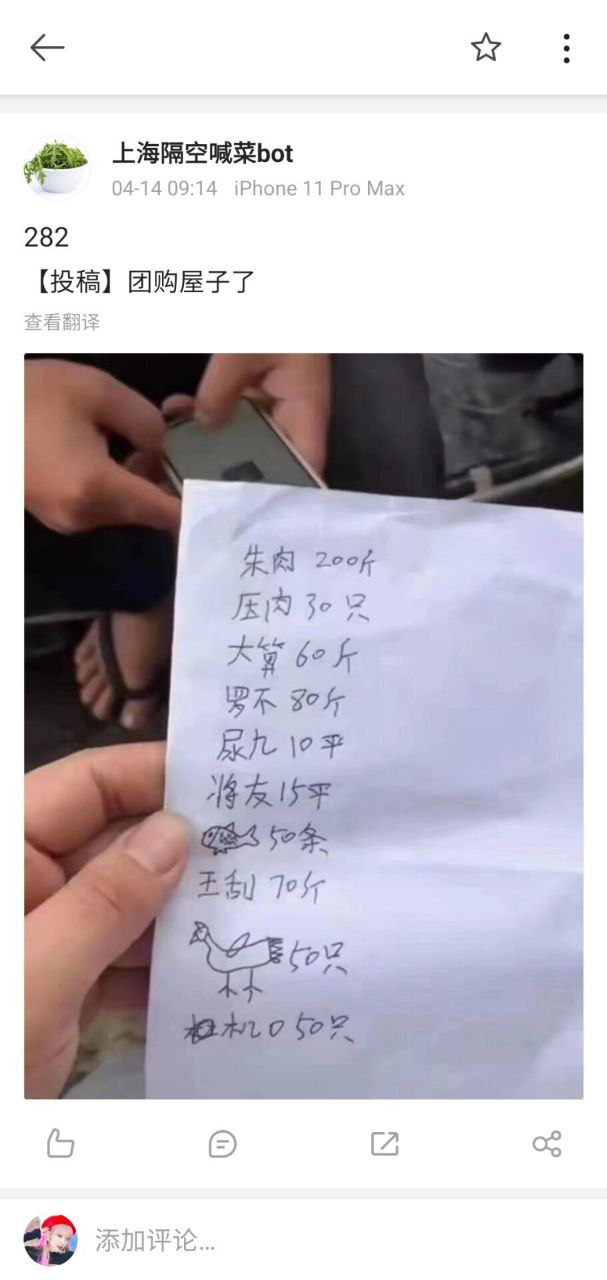 上海隔空喊菜bot
04-14 09:14 iPhone 11 Pro Max
282
【投稿】团购屋子了
查看翻译
朱肉 200斤
压肉 30只
大算 60斤
罗不 80斤
尿九 10平
将友 15平
50条
王刮 70斤
50只
机口 50只
添加评论...